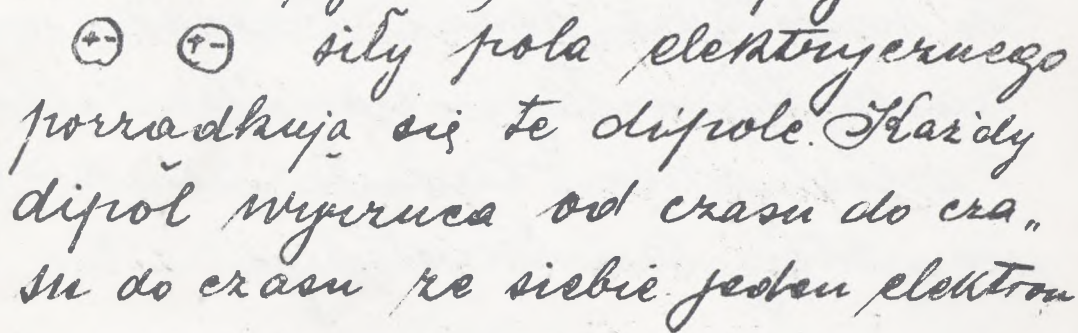 +- +- siły pola elektrycznego
porządkują się te dipole. Każdy
dipol wyrzuca od czasu do cza„
su do czasu ze siebie jeden elektron